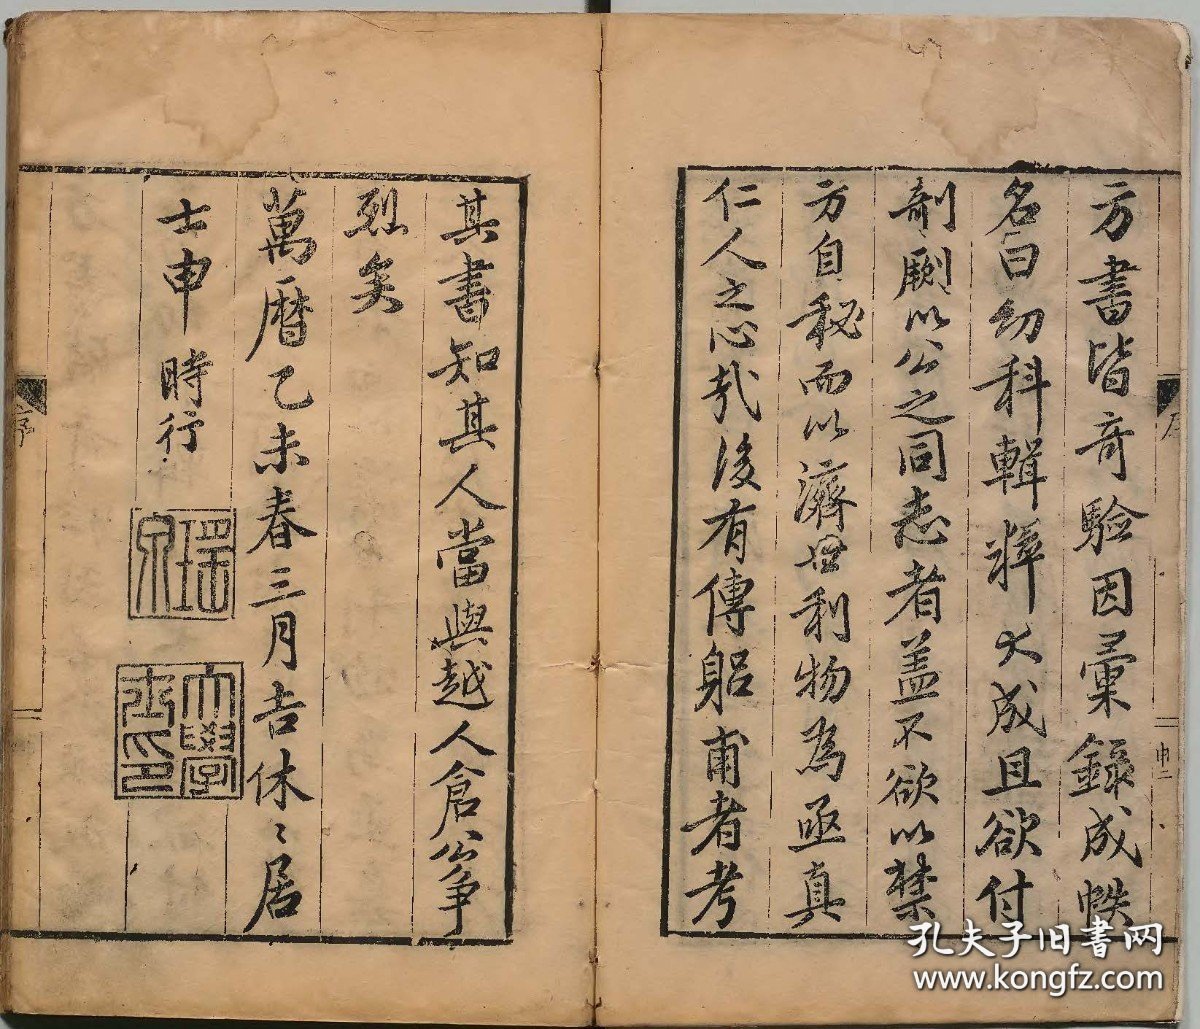 方書皆奇驗因彙錄成帙
名曰幼科輯粹大成且欲付
剞劂以公之同志者盖不欲以禁
方自秘而以濟世利物為亟真
仁人之心㢤後有傳躳甫者考
其書知其人當與越人倉公争
烈矣
萬曆乙未春三月吉休〻居
士申時行
瑶泉
大學士印
序
申二
孔夫子旧书网
www.kongfz.com